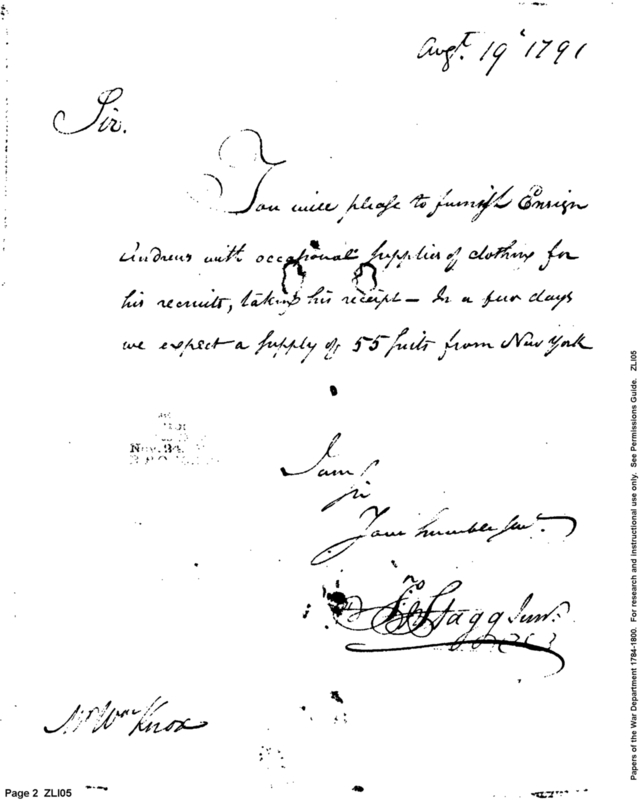 Augt. 19 1791
Sir.
You will please to furnish Ensign
Andrews with occasional supplies of clothing for
his recruits, taking his receipt — In a few days
we expect a supply of 55 suits from New York
I am
Sir
Your humble Servt.
Jno Stagg Junr.
Mr Wm Knox
Page 2 ZLI05
Papers of the War Department 1784-1800. For research and instructional use only. See Permissions Guide. ZLI05